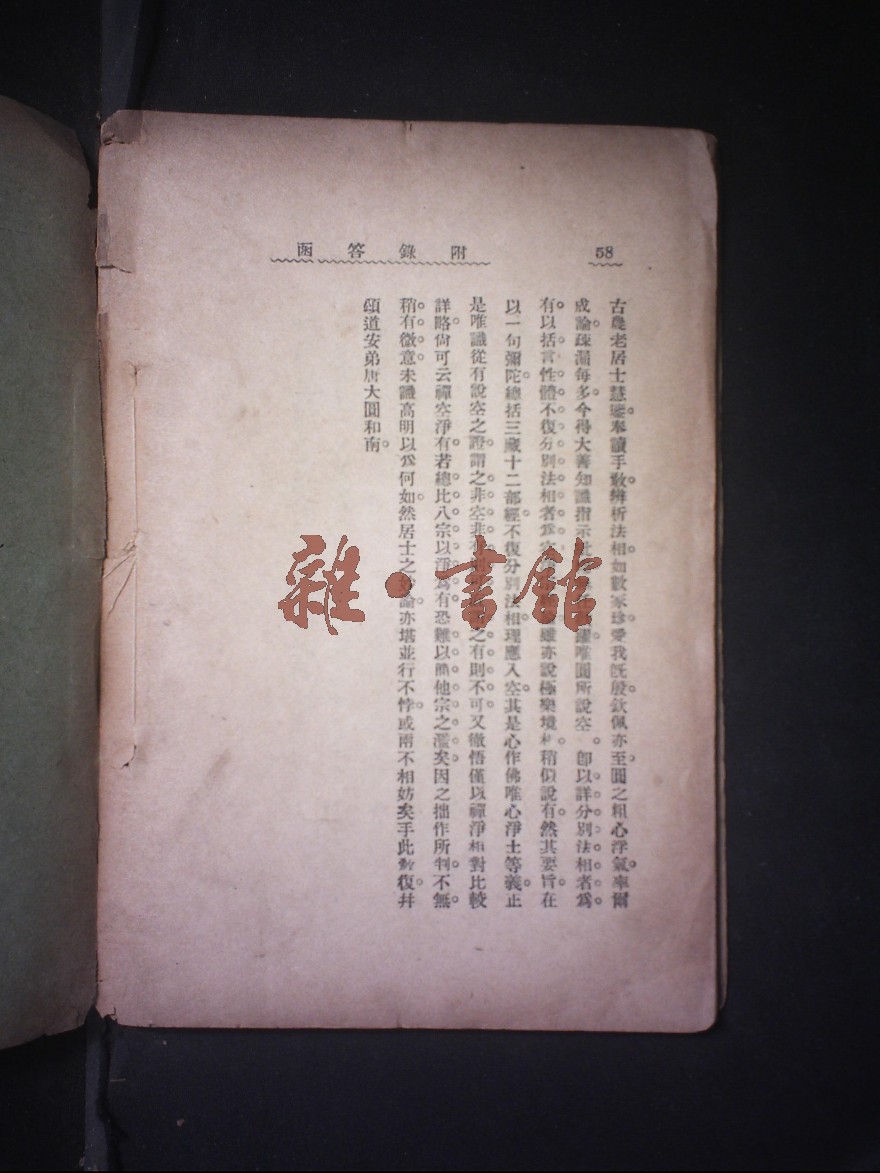 58
附錄答函
古農老居士慧鑒奉讀手敎。辨析法相。如數家珍。愛我旣殷。欽佩亦至。圓之粗心浮氣。率爾
成論。疎漏每多。今得大善知識指示唯圓所說空。卽以詳分別法相者爲
有。以括言性體不復分別法相者爲空雖亦說極樂境相。稍似說有。然其要旨。在
以一句彌陀。總括三藏十二部經。不復分別法相。理應入空。其是心作佛唯心淨土等義。正
是唯識從有說空之證。謂之非空非之有則不可。又徹悟僅以禪淨相對比較
詳略。尙可云禪空淨有。若總比八宗以淨爲有。恐難以簡他宗之濫矣。因之拙作所判。不無
稍有微意。未識高明以爲何如。然居士之論。亦堪並行不悖。或兩不相妨矣。手此敬復。幷
頌道安。弟唐大圓和南。
雜·書館